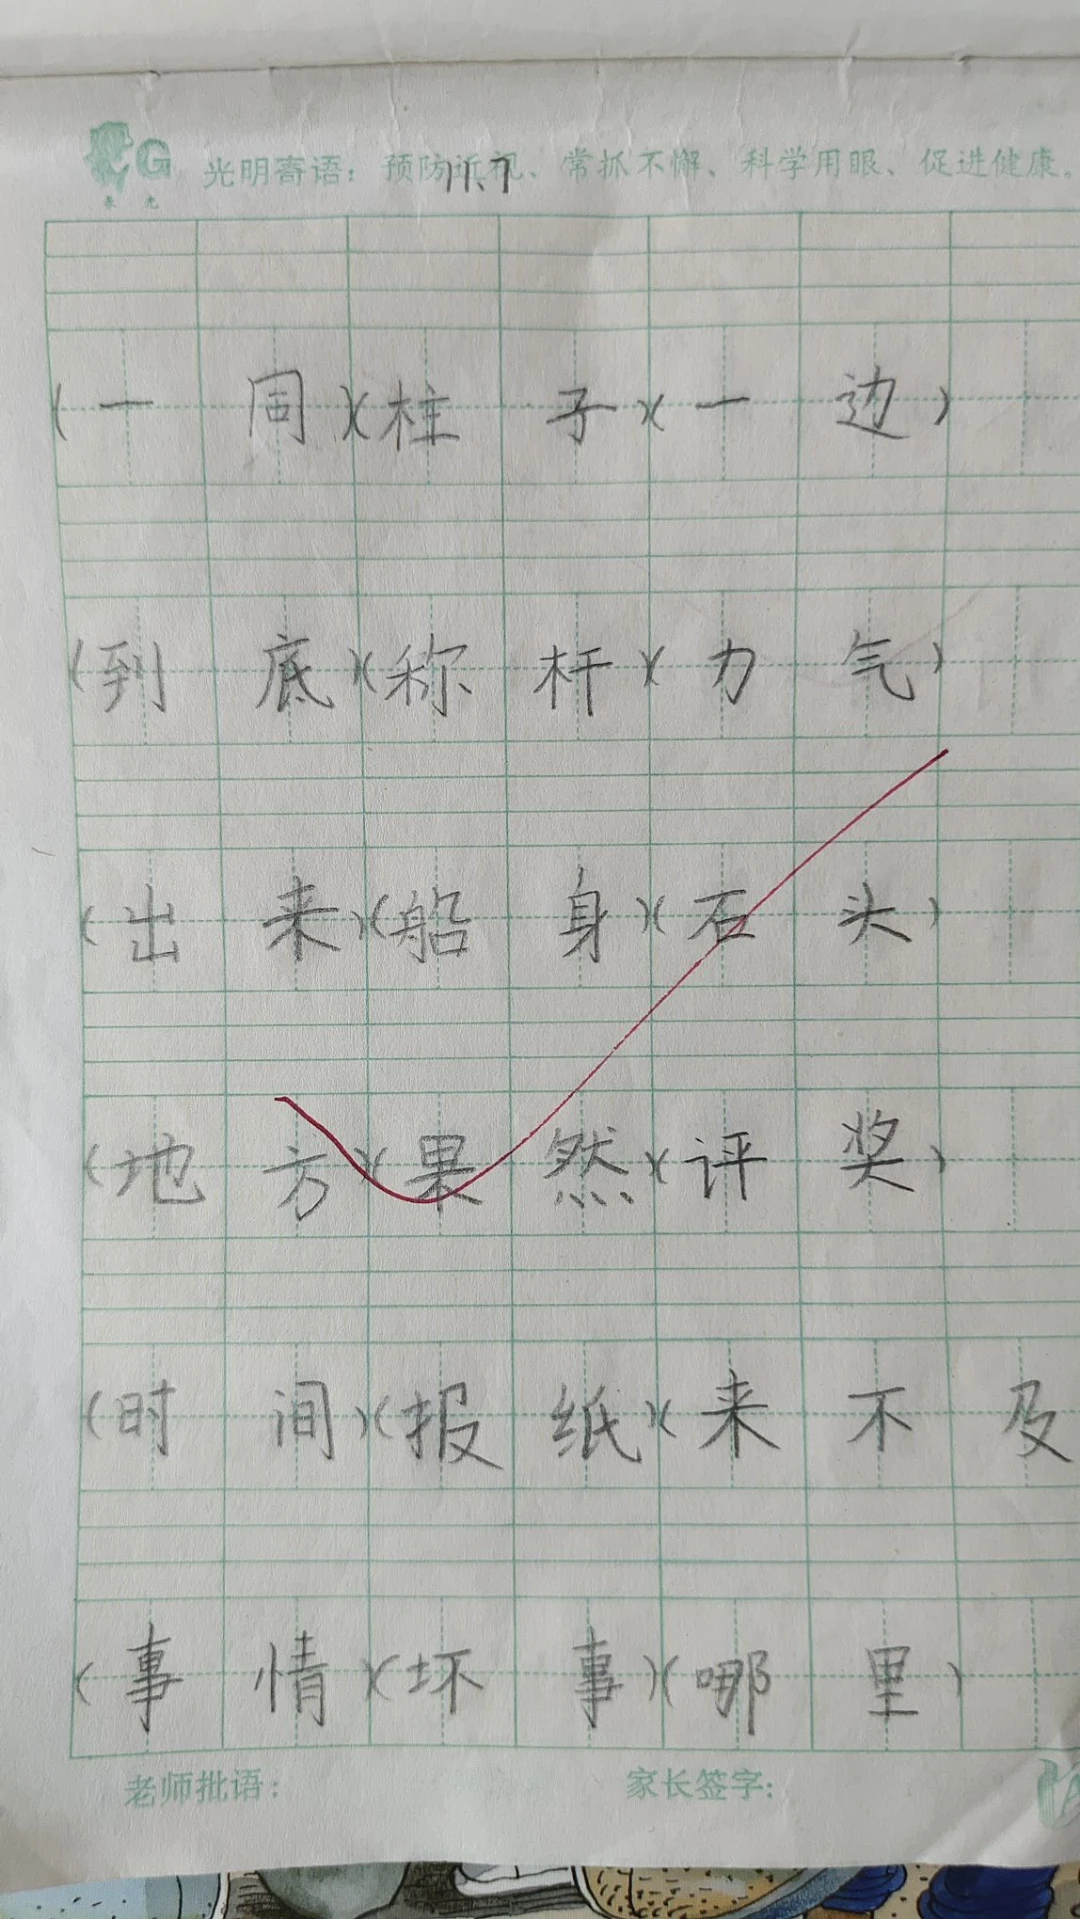 G 光明寄语：预防近视、常抓不懈、科学用眼、促进健康。
11.7
(一周)(柱子)(一边)
(到底)(称杆)(力气)
(出来)(船身)(石头)
(地方)(果然)(评奖)
(时间)(报纸)(来不及
(事情)(坏事)(哪里)
老师批语： 家长签字：